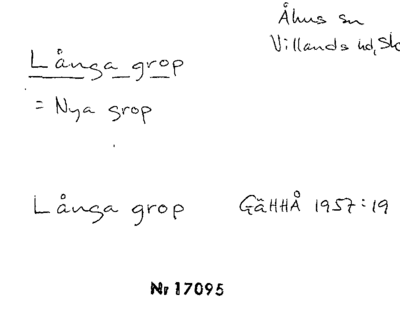 Åhus sn
Villands hd, Sk
Långa grop
= Nya grop
Långa grop GäHHÅ 1957:19
Nr 17095